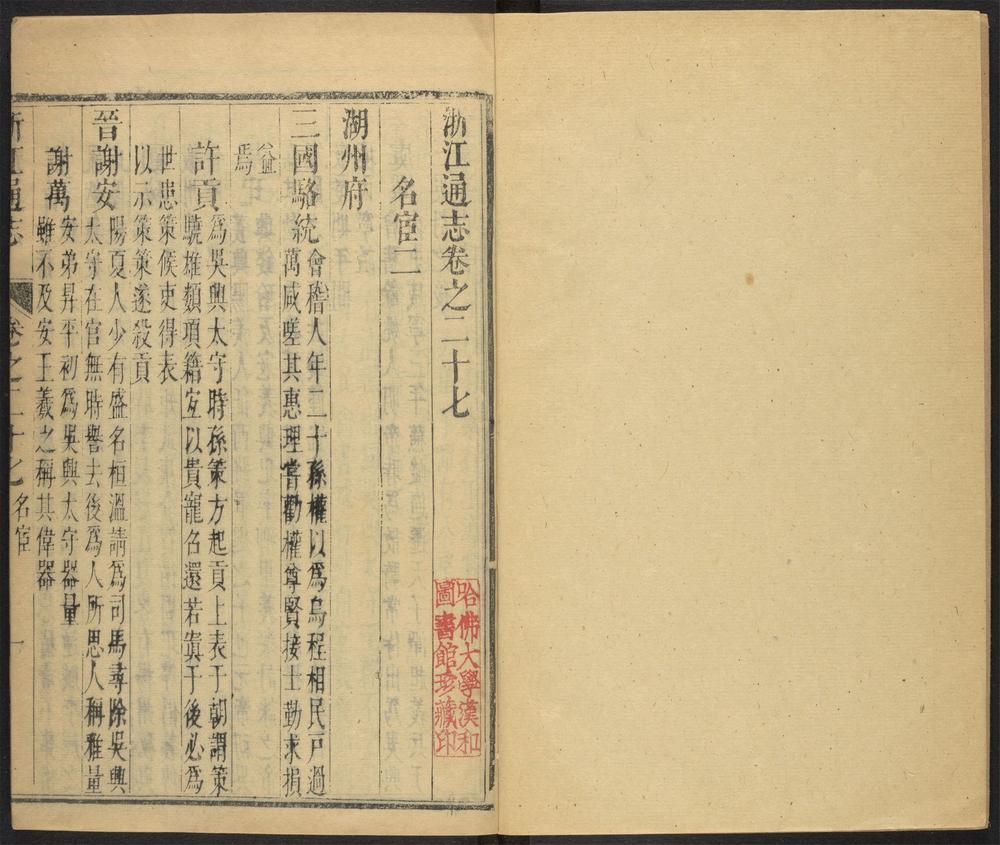 浙江通志卷之二十七
名宦二
湖州府
三國駱統會稽人年二十孫權以爲烏程相民戸過
萬咸嗟其惠理嘗勸權尊賢接士勤求損
益
焉
許貢爲吳興太守時孫策方起貢上表于朝謂策
驍雄類項籍宜以貴寵召還若寘于後必爲
世患策候吏得表
以示策策遂殺貢
晉謝安陽夏人少有盛名桓溫請爲司馬尋除吳興
太守在官無時譽去後爲人所思人稱雅量
謝萬安弟昇平初爲吳興太守器量
雖不及安王羲之稱其偉器
浙江通志 卷之二十七 名宦 一
哈佛大學漢和
圖書館珍藏印